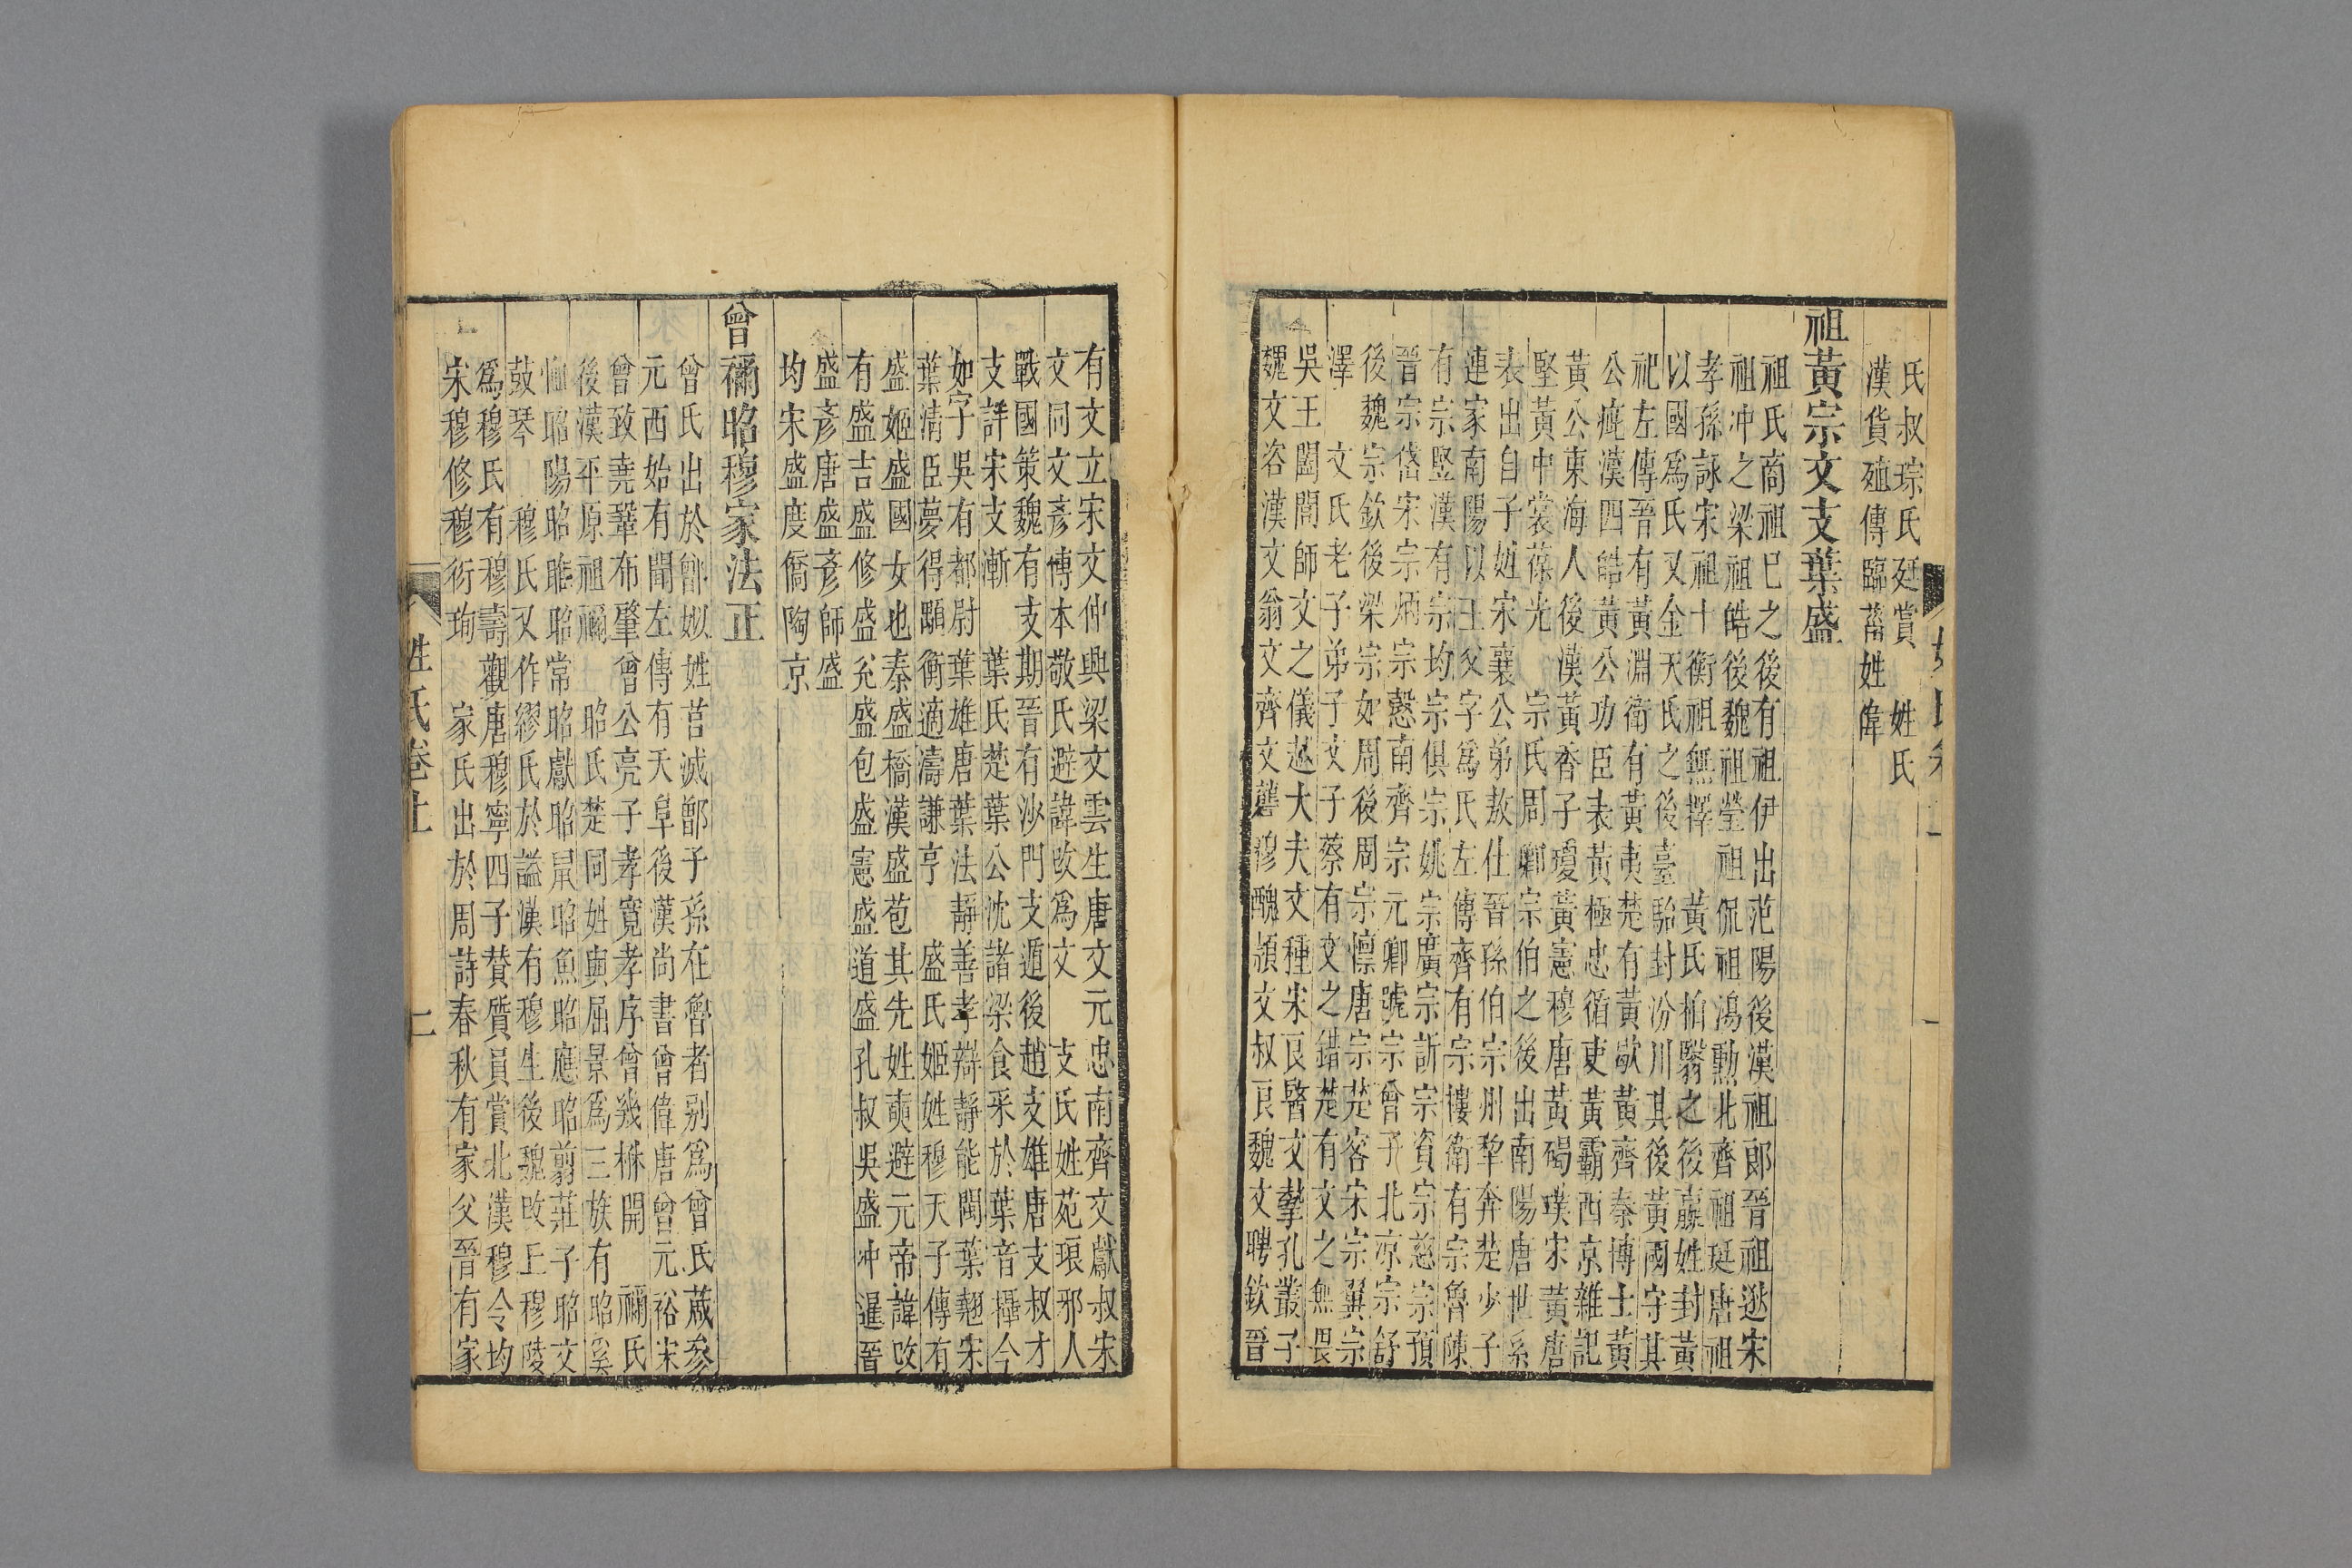 氏叔琮氏廷賞　姓氏
漢貨殖傳臨菑姓偉
祖黃宗文支葉盛
祖氏商祖巳之後有祖伊出范陽後漢祖郎晉祖逖宋
祖冲之梁祖皓後魏祖瑩祖侃祖鴻勳北齊祖珽唐祖
孝孫詠宋祖十衡祖無擇　黃氏柏翳之後嬴姓封黃
以國爲氏又金天氏之後臺駘封汾川其後黃國守其
祀左傳晉有黃淵衛有黃夷楚有黃歇黃齊秦博士黃
公疵漢四皓黃公功臣表黃極忠循吏黃霸西京雜記
黃公東海人後漢黃香子瓊黃憲穆唐黃碣璞宋黃唐
堅黃中裳葆光　宗氏周卿宗伯之後出南陽唐世系
表出自子姓宋襄公弟敖仕晉孫伯宗州犂奔楚少子
連家南陽以王父字爲氏左傳齊有宗樓衛有宗魯陳
有宗竪漢有宗均宗俱宗姚宗廣宗訢宗資宗慈宗預
晉宗岱宋宗炳宗慤南齊宗元卿號宗曾子北凉宗舒
後魏宗欽後梁宗如周後周宗懍唐宗楚客宋宗翼宗
澤　文氏老子弟子文子蔡有文之錯楚有文之無畏
吳王闔閭師文之儀越大夫文種宋良醫文摯孔叢子
魏文咨漢文翁文齊文聾穆醜潁文叔良魏文聘欽晉
有文立宋文仲興梁文雲生唐文元忠南齊文獻叔宋
文同文彥博本敬氏避諱改爲文　支氏姓苑琅邪人
戰國策魏有支期晉有沙門支遁後趙支雄唐支叔才
支詳宋支漸　葉氏楚葉公沈諸梁食采於葉音攝今
如字吳有都尉葉雄唐葉法靜善孝辯靜能閩葉翹宋
葉清臣夢得顒衡適濤謙亨　盛氏姬姓穆天子傳有
盛姬盛國女也秦盛橋漢盛苞其先姓奭避元帝諱改
有盛吉盛修盛允盛包盛憲盛道盛孔叔吳盛冲暹晉
盛彥唐盛彥師盛
均宋盛度僑陶京
曾禰昭穆家法正
曾氏出於鄫姒姓莒滅鄫子孫在魯者别爲曾氏蒧參
元西始有聞左傳有天阜後漢尚書曾偉唐曾元裕宋
曾致堯鞏布肇曾公亮子孝寬孝序曾幾楙開　禰氏
後漢平原祖禰　昭氏楚同姓與屈景爲三族有昭奚
恤昭陽昭睢昭常昭獻昭鼠昭魚昭應昭翦莊子昭文
鼓琴　穆氏又作繆氏於謚漢有穆生後魏改丘穆陵
爲穆氏有穆壽觀唐穆寧四子賛質員賞北漢穆令均
宋穆修穆衍珣　家氏出於周詩春秋有家父晉有家
姓氏卷上　二